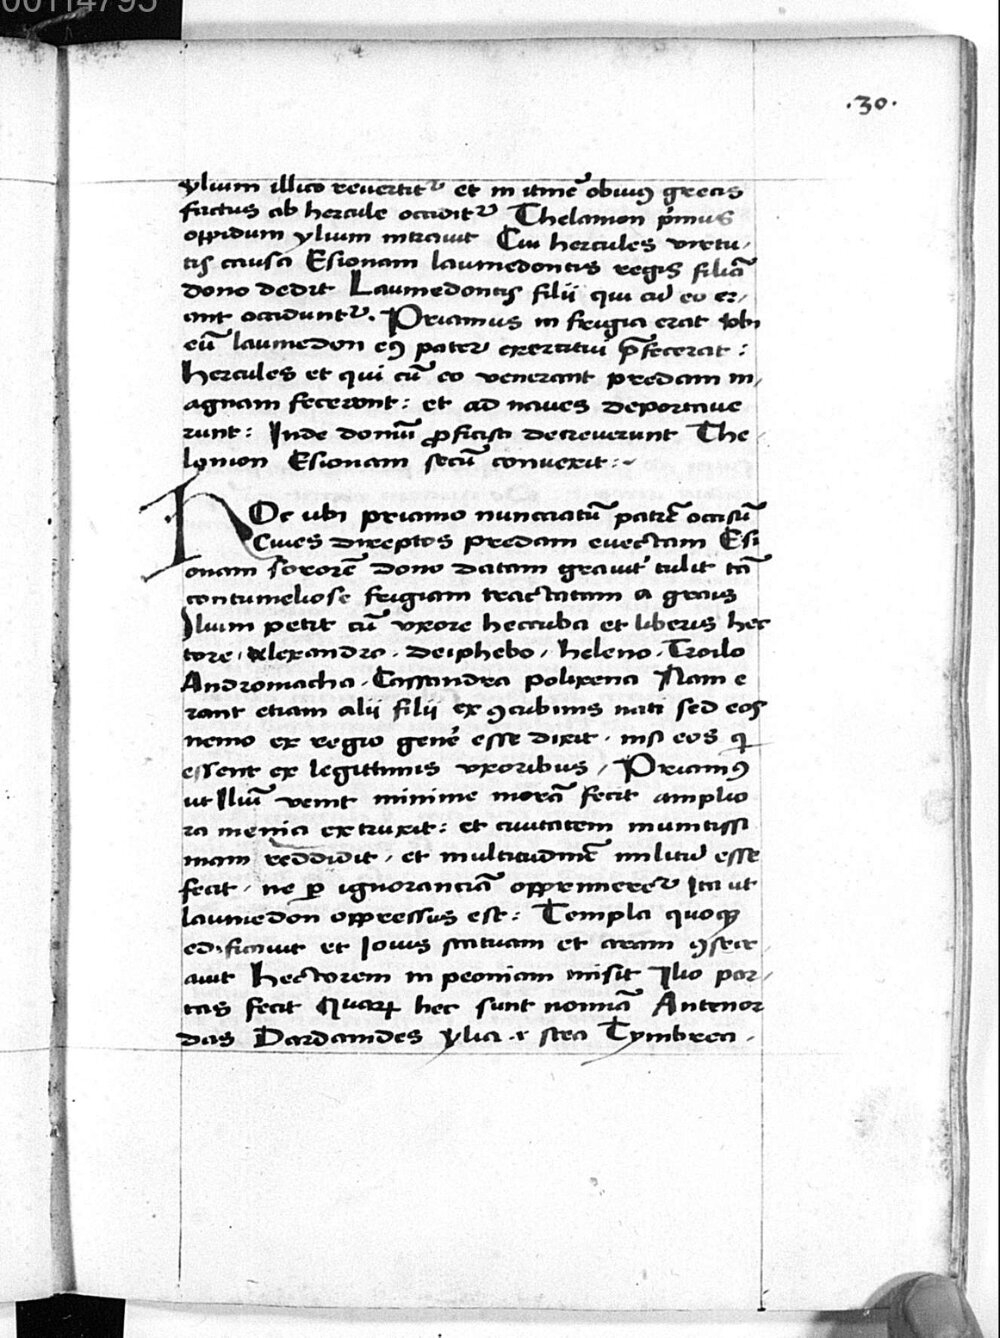 00114795
.30.
ylium illico reuertitᷣ et in itinē obuiꝰ grecis
factus ab hercule occiditᷣ Thelamon pͥmus
oppidum ylium intrauit Cui hercules virtu/
tis causa Esionam laumedontis regis filiā
dono dedit Laumedontis filii qui cū eo er/
ant occidunturᷣ. Priamus in frigia erat Vbi
eū laumedon eꝰ pater exercitui p̄fecerat :
hercules et qui cū eo venerant predam m/
agnam fecerunt : et ad naues deportaue
runt : Inde domū ꝓficisci decreuerunt The/
lamon Esionam secū conuexit :~
HOc ubi priamo nunciatū patrē occisū
Ciues direptos predam euectam Esi
onam sororē dono datam grauiť tulit tā
contumeliose frigiam tractatam a grecis
Ilium petit cū vxore heccuba et liberis hec
tore / Alexandro . deiphebo / heleno . Troilo
Andromacha . Cassandra polixena Nam e
rant etiam alii filii ex ꝯcubinis nati sed eos
nemo ex regio genē esse dixit . nisi eos q̇
essent ex legittimis vxoribus / Priamꝰ
ut Iliū venit minime morā fecit amplio
ra menia extruxit : et ciuitatem munitissi
mam reddidit . et multitudinē militū esse
fecit . ne ꝑ ignoranciā opprimeretᷣ Ita ut
laumedon oppressus est : Templa quoqꝫ
edificauit et Iouis statuam et aram ꝯsecr
auit hectorem in peoniam misit Ilio por/
tas fecit Quaꝝ hec sunt nominā Antenor
das Dardanides ylia . s stea Tymbrea .